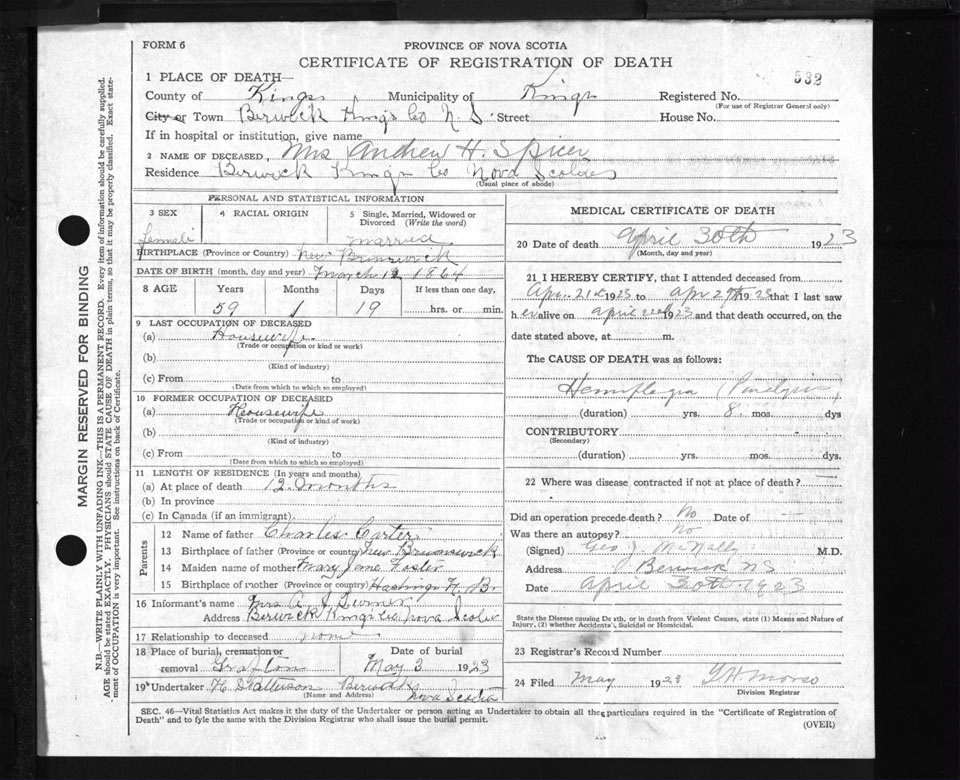 FORM 6
PROVINCE OF NOVA SCOTIA
CERTIFICATE OF REGISTRATION OF DEATH
532
1 PLACE OF DEATH—
County of Kings, Municipality of Kings Registered No.
(For use of Registrar General only)
City or Town Berwick Kings Co N. S. Street House No.
If in hospital or institution, give name
2 NAME OF DECEASED, Mrs Andrew H. Spicer
Residence Berwick Kings Co Nova Scotia
(Usual place of abode)
PERSONAL AND STATISTICAL INFORMATION
3 SEX 4 RACIAL ORIGIN 5 Single, Married, Widowed or Divorced (Write the word)
female married
BIRTHPLACE (Province or Country) New Brunswick
DATE OF BIRTH (month, day and year) March 1864
8 AGE Years Months Days If less than one day,
59 1 19 hrs. or min.
9 LAST OCCUPATION OF DECEASED
(a) Housewife
(Trade or occupation or kind or work)
(b)
(Kind of industry)
(c) From to
(Date from which to which so employed)
10 FORMER OCCUPATION OF DECEASED
(a) Housewife
(Trade or occupation or kind of work)
(b)
(Kind of industry)
(c) From to
(Date from which to which so employed)
11 LENGTH OF RESIDENCE (In years and months)
(a) At place of death 12 months
(b) In province
(c) In Canada (if an immigrant)
Parents
12 Name of father Charles Carter
13 Birthplace of father (Province or country) New Brunswick
14 Maiden name of mother Mary Jane Foster
15 Birthplace of mother (Province or country) Hastings N. B.
16 Informant's name Mrs A. Turner
Address Berwick Kings Co Nova Scotia
17 Relationship to deceased none
18 Place of burial, cremation or removal Grafton Date of burial May 3 1923
19 Undertaker H Patterson Berwick Nova Scotia
(Name and Address)
MEDICAL CERTIFICATE OF DEATH
20 Date of death April 30th 1923
(Month, day and year)
21 I HEREBY CERTIFY, that I attended deceased from
Apr. 21st 1923 to Apr 29th 1923 that I last saw
her alive on April 1923 and that death occurred, on the
date stated above, at m.
The CAUSE OF DEATH was as follows:
Hemiplegia (Paralysis)
(duration) yrs. 8 mos. dys
CONTRIBUTORY
(Secondary)
(duration) yrs. mos. dys.
22 Where was disease contracted if not at place of death?
Did an operation precede death? No Date of —
Was there an autopsy? No
(Signed) Geo J. McNally M.D.
Address Berwick NS
Date April 30th 1923
State the Disease causing Death, or in death from Violent Causes, state (1) Means and Nature of
Injury, (2) whether Accidents, Suicidal or Homicidal.
23 Registrar's Record Number
24 Filed May 1923
Division Registrar
SEC. 46—Vital Statistics Act makes it the duty of the Undertaker or person acting as Undertaker to obtain all the particulars required in the "Certificate of Registration of
Death" and to fyle the same with the Division Registrar who shall issue the burial permit.
(OVER)
MARGIN RESERVED FOR BINDING
N.B.—WRITE PLAINLY WITH UNFADING INK—THIS IS A PERMANENT RECORD. Every item of information should be carefully supplied.
AGE should be stated EXACTLY. PHYSICIANS should STATE CAUSE OF DEATH in plain terms, so that it may be properly classified. Exact state-
ment of OCCUPATION is very important. See instructions on back of Certificate.